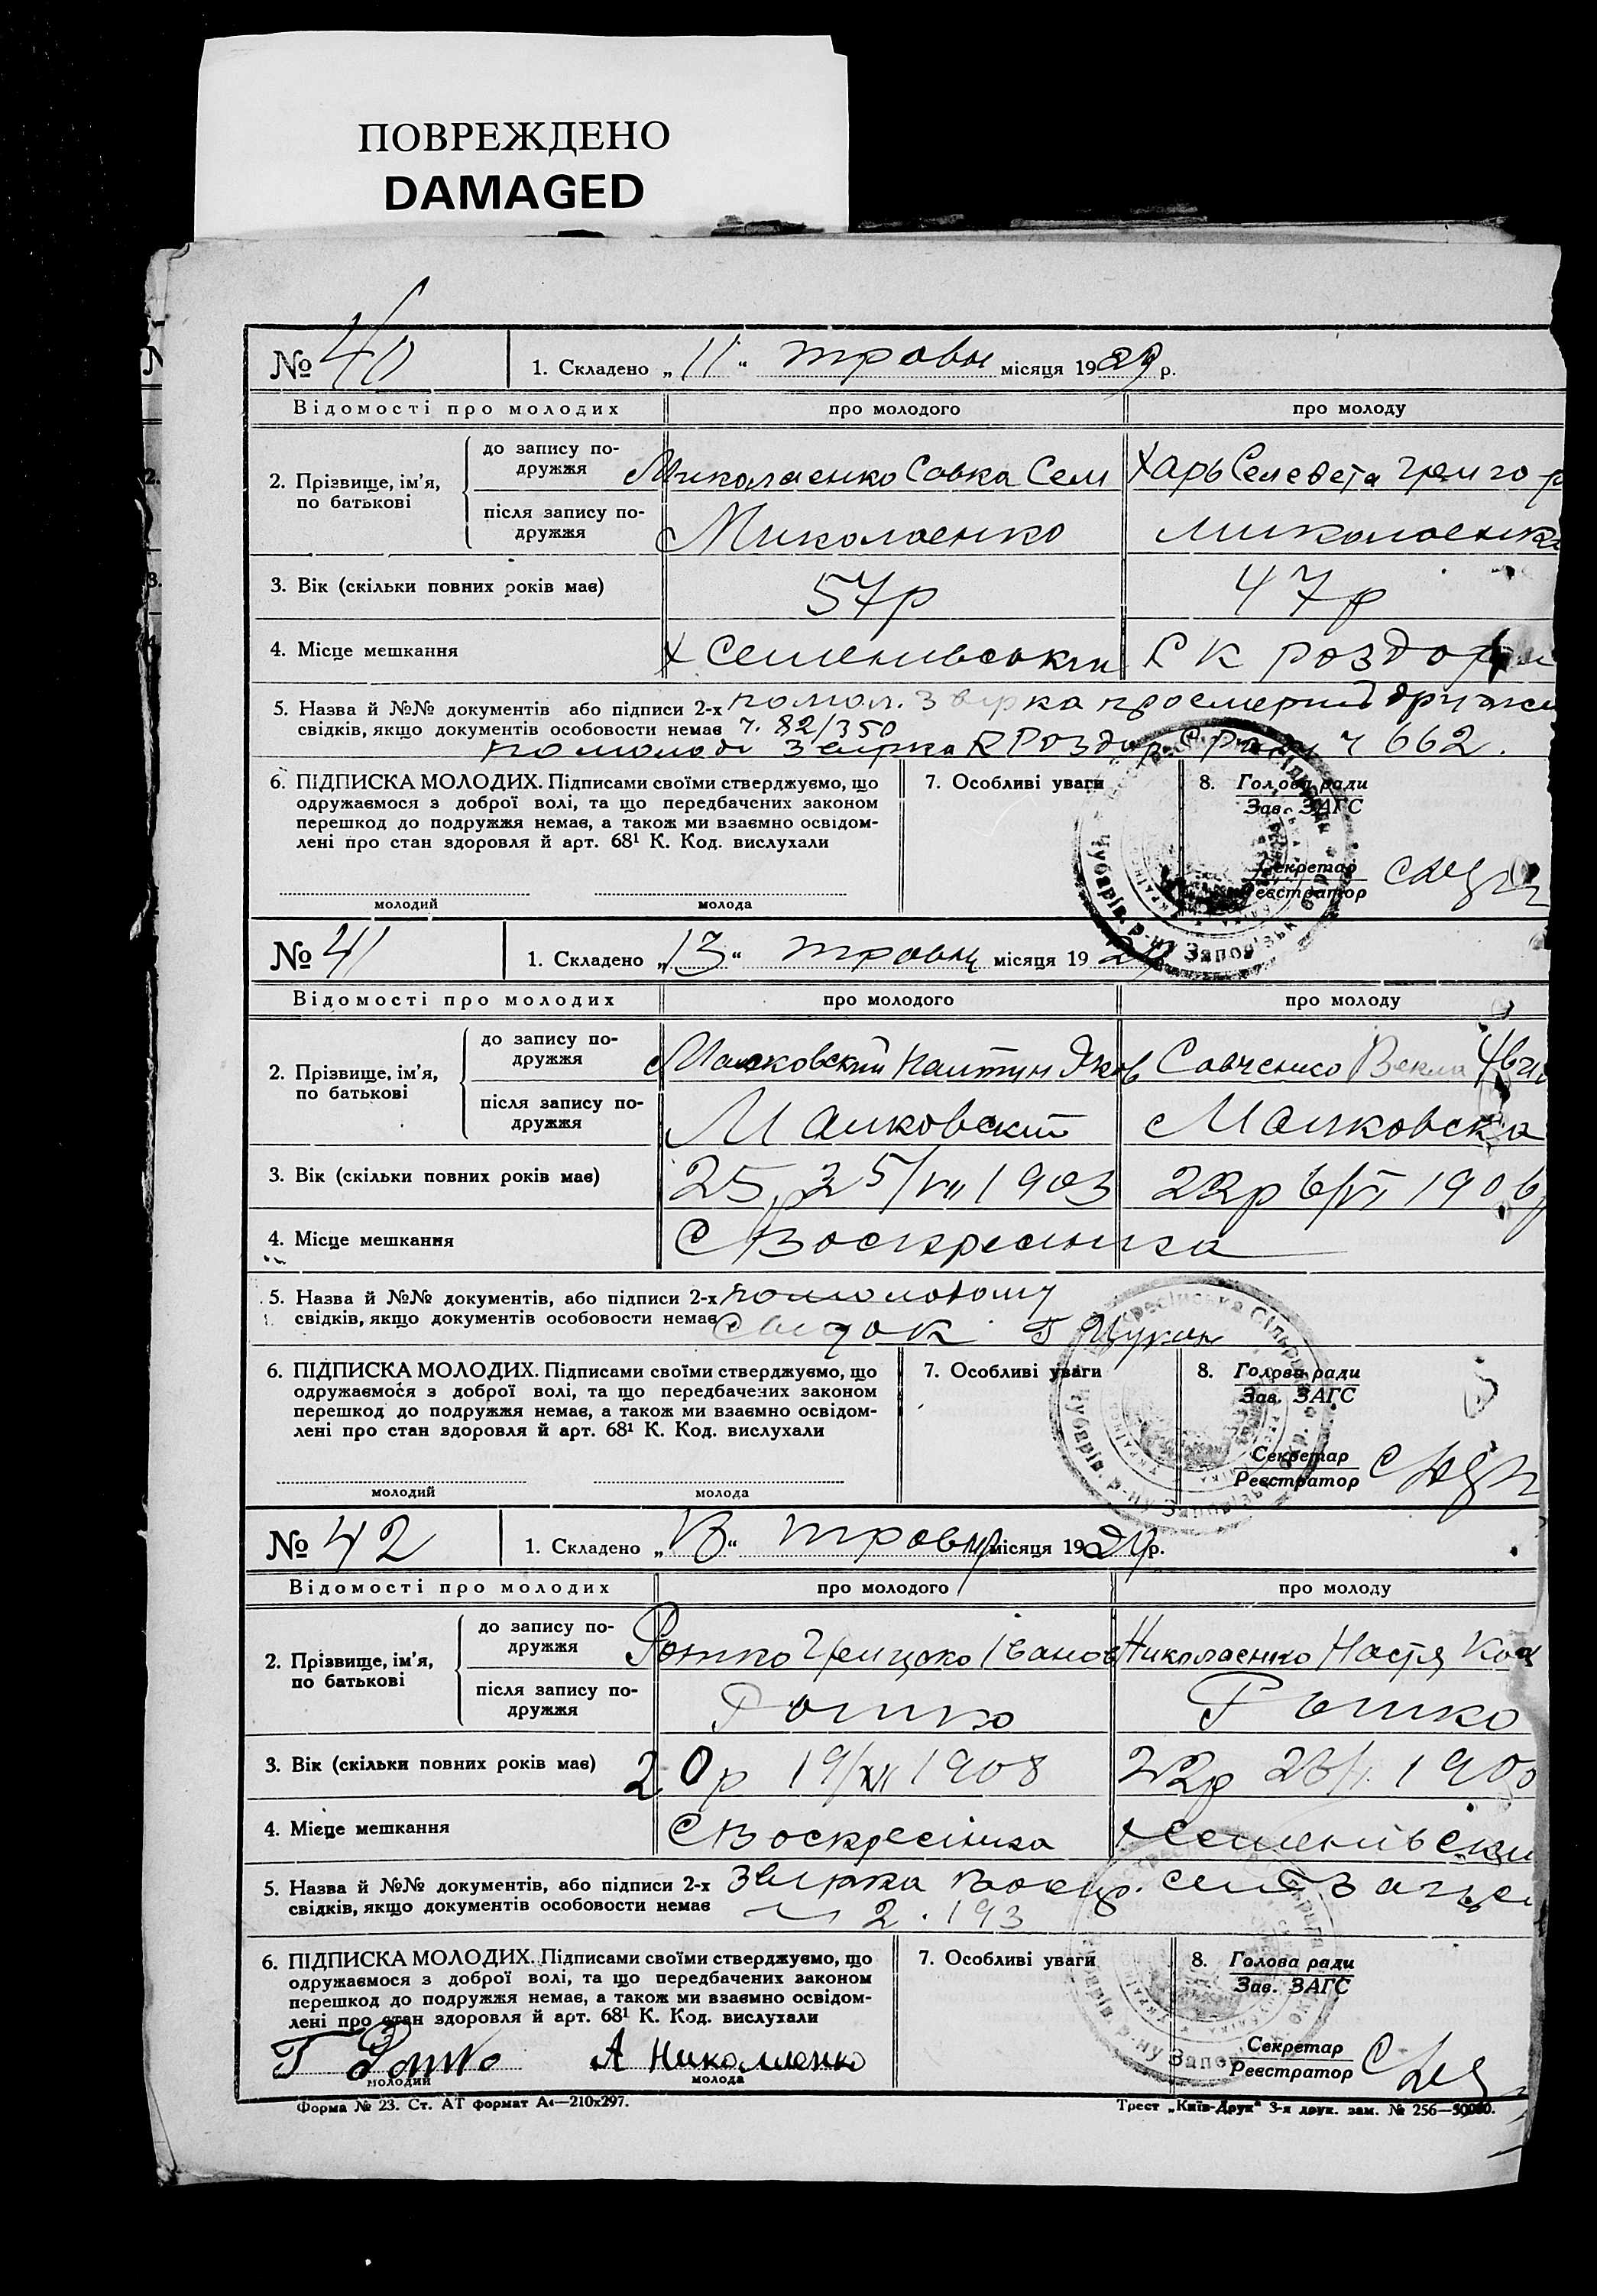 ПОВРЕЖДЕНО
DAMAGED
№ 40 1. Складено „11“ травн місяця 1929 р.
Відомості про молодих про молодого про молоду
2. Прізвище, ім'я, по батькові
до запису подружжя Миколаенко Савка Сем Харь Селевета Григор
після запису подружжя Миколаенко Миколаенк
3. Вік (скільки повних років має) 57р 47р
4. Місце мешкання х Семенивський
5. Назва й №№ документів або підписи 2-х
свідків, якщо документів особовости немає ч. 82/350
ч 662.
6. ПІДПИСКА МОЛОДИХ. Підписами своїми стверджуємо, що 7. Особливі уваги 8. Голова ради
одружаємося з доброї волі, та що передбачених законом Зав. ЗАГС
перешкод до подружжя немає, а також ми взаємно освідом-
лені про стан здоровля й арт. 68¹ К. Код. вислухали Секретар
Реєстратор
молодий молода
№ 41 1. Складено „13“ травня місяця 1929
Відомості про молодих про молодого про молоду
2. Прізвище, ім'я, по батькові
до запису подружжя Яков Савченко Векла
після запису подружжя Маиковский Маиковска
3. Вік (скільки повних років має) 25р 25/VII 1903 22р 6/VI 1906
4. Місце мешкання С Воскресинка
5. Назва й №№ документів, або підписи 2-х помолодому
свідків, якщо документів особовости немає Свидок
6. ПІДПИСКА МОЛОДИХ. Підписами своїми стверджуємо, що 7. Особливі уваги 8. Голова ради
одружаємося з доброї волі, та що передбачених законом Зав. ЗАГС
перешкод до подружжя немає, а також ми взаємно освідом-
лені про стан здоровля й арт. 68¹ К. Код. вислухали Секретар
Реєстратор
молодий молода
№ 42 1. Складено „13“ травня місяця 1929р.
Відомості про молодих про молодого про молоду
2. Прізвище, ім'я, по батькові
до запису подружжя Грицько Іванов Николаенко Настя
після запису подружжя
3. Вік (скільки повних років має) 20р 19/XII 1908 22р
4. Місце мешкання С Воскресінка
5. Назва й №№ документів, або підписи 2-х
свідків, якщо документів особовости немає 2. 193
6. ПІДПИСКА МОЛОДИХ. Підписами своїми стверджуємо, що 7. Особливі уваги 8. Голова ради
одружаємося з доброї волі, та що передбачених законом Зав. ЗАГС
перешкод до подружжя немає, а також ми взаємно освідом-
лені про стан здоровля й арт. 68¹ К. Код. вислухали Секретар
А Николаенко Реєстратор
молодий молода
Форма № 23. Ст. АТ формат А₄—210х297. Трест „Київ-Друк“ 3-я друк. зам. № 256—50000.